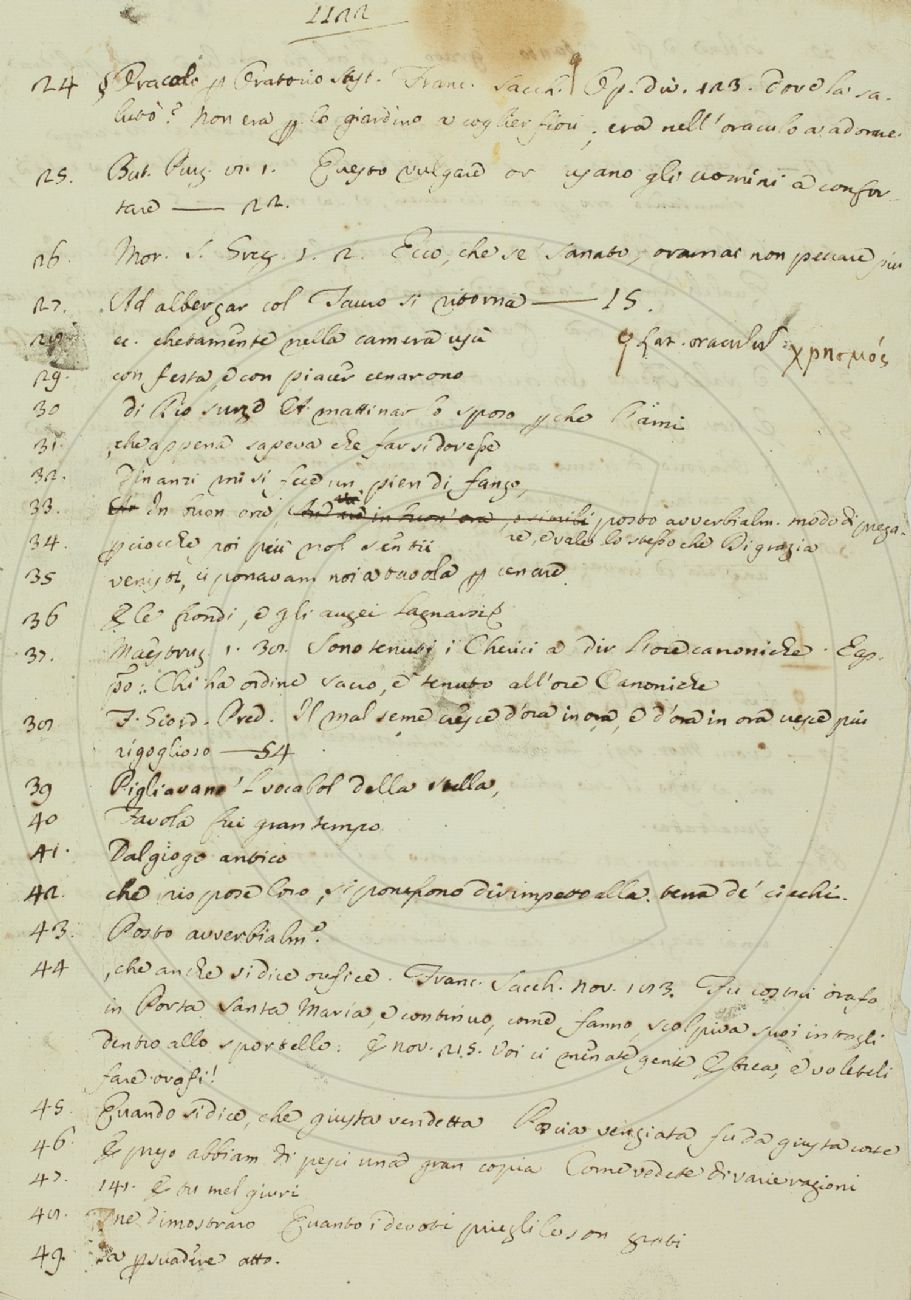 1122
24 § Oracolo p Oratorio Sust. Franc. Sacch. Op. div. 123. dove la sa-
lutò? Non era p lo giardino a coglier fiori, era nell'oraculo a adorare.
25. But. Purg. 1. Questo vulgare or usano gli uomini a confor-
tare —— 22.
26 Mor. S. Greg. 1. 2. Ecco, che se' sanato, oramai non peccare più
27. Ad albergar col Tauro si ritorna —— 15.
28. ec. chetamente nella camera uscì
§ Lat. oraculum χρησμός
29. con festa, e con piacer cenarono
30 di Dio surge A mattinar lo sposo p che l'ami
31. , che appena sapeva che far si dovesse
32. dinanzi mi si fece un pien di fango,
33. In buon ora, posto avverbialm. modo di prega-
re, e vale lo stesso che Di grazia
34. p ciocchè poi più nol sentii
35 venisti, ci ponavam noi a tavola p cenare
36 E le frondi, e gli augei lagnarsi
37. Maestruz. 1. 30. Sono tenuti i Cherici a dir l'ore canoniche. E ap-
po: Chi ha ordine sacro, è tenuto all'ore Canoniche
38 F. Giord. Pred. Il mal seme cresce d'ora in ora, e d'ora in ora cresce più
rigoglioso — 54
39 Pigliavano 'l vocabol della stella,
40 Favola fui gran tempo
41. Dal giogo antico
42. che rispose loro, si ponessono dirimpetto alla terra de' ciechi.
43. Posto avverbialm.e
44 , che anche si dice orefice. Franc. Sacch. nov. 183. Fu costui orafo
in Porta Santa Maria, e continuo, come fanno, scolpiva suoi intagli
dentro allo sportello: E nov. 215. Voi ci menate gente E, e voleteli
fare orafi!
45. Quando si dice, che giusta vendetta Poscia vengiata fu da giusta corte
46 E preso abbiam di pesci una gran copia Come vedete di varie ragioni
47. 141. E tu mel giuri
48. ne dimostraro Quanto i devoti prieghi le son grati
49. a psuadere atto.